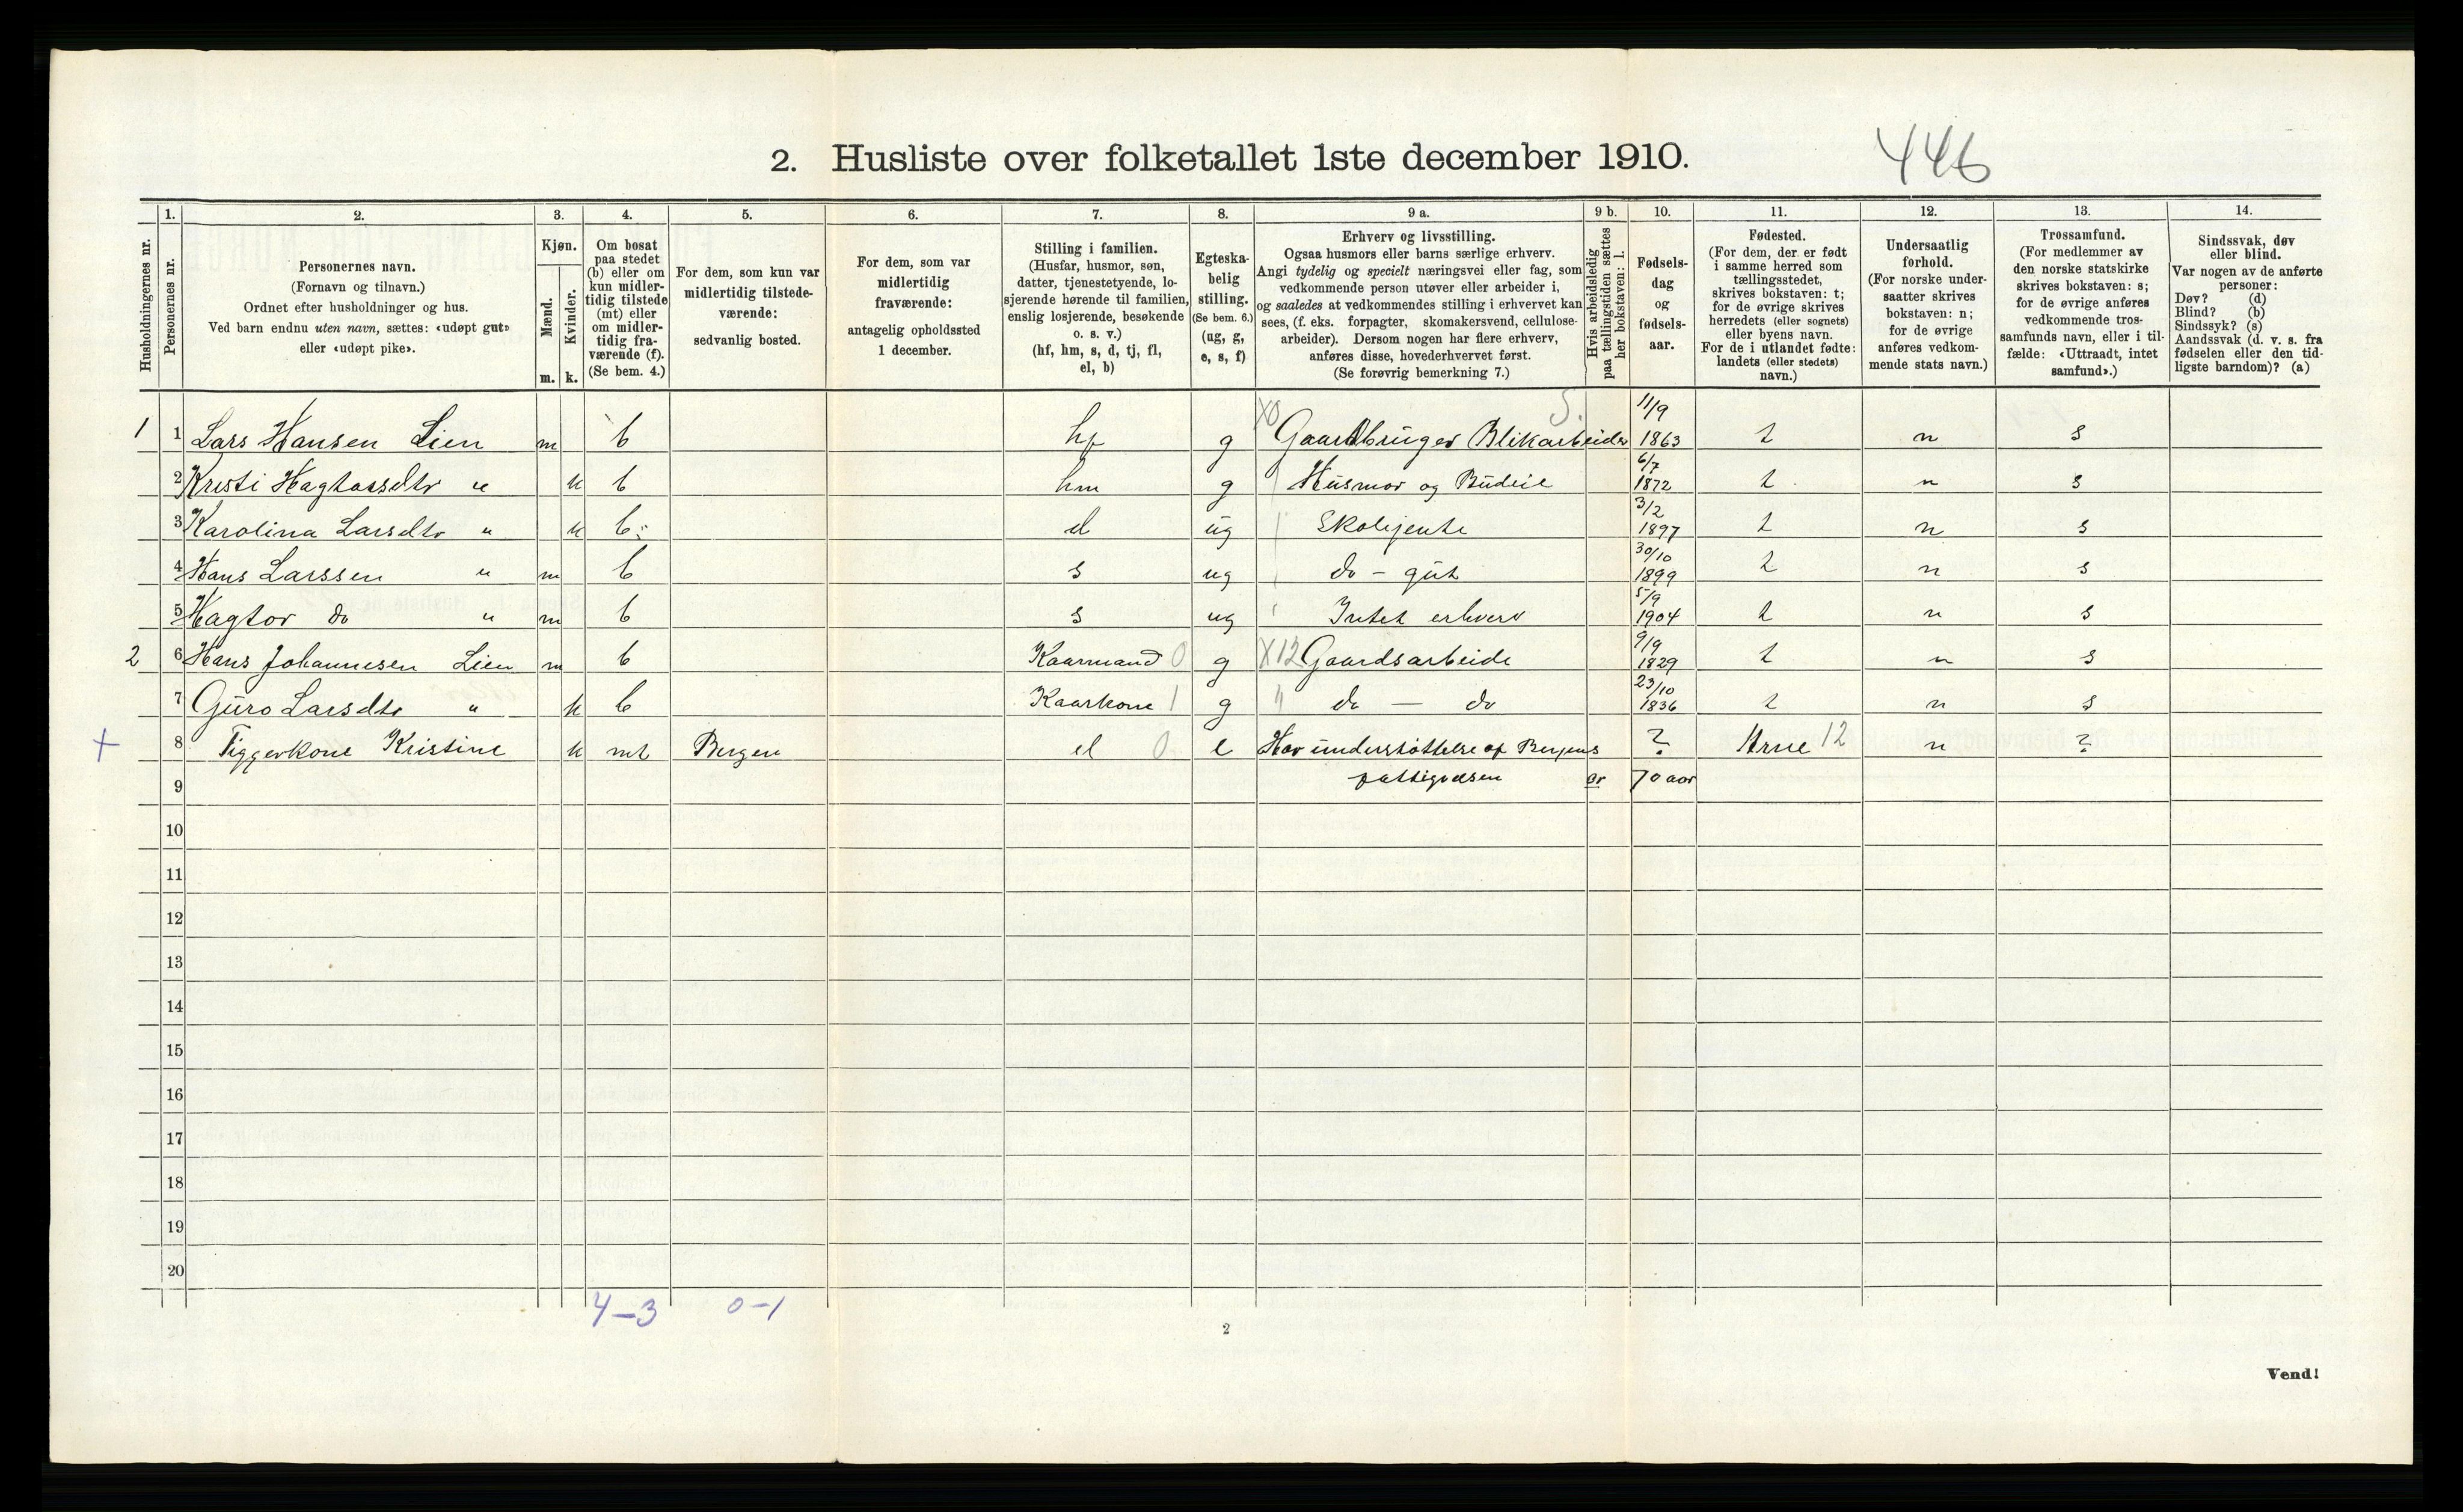 2. Husliste over folketallet 1ste december 1910.
446
Husholdningernes nr.
1. Personernes nr.
2. Personernes navn.
(Fornavn og tilnavn.)
Ordnet efter husholdninger og hus.
Ved barn endnu uten navn, sættes: «udøpt gut»
eller «udøpt pike».
3. Kjøn.
Mænd. m.
Kvinder. k.
4. Om bosat
paa stedet
(b) eller om
kun midler-
tidig tilstede
(mt) eller
om midler-
tidig fra-
værende (f).
(Se bem. 4.)
5. For dem, som kun var
midlertidig tilstede-
værende:
sedvanlig bosted.
6. For dem, som var
midlertidig
fraværende:
antagelig opholdssted
1 december.
7. Stilling i familien.
(Husfar, husmor, søn,
datter, tjenestetyende, lo-
sjerende hørende til familien,
enslig losjerende, besøkende
o. s. v.)
(hf, hm, s, d, tj, fl,
el, b)
8. Egteska-
belig
stilling.
(Se bem. 6.)
(ug, g,
e, s, f)
9 a. Erhverv og livsstilling.
Ogsaa husmors eller barns særlige erhverv.
Angi tydelig og specielt næringsvei eller fag, som
vedkommende person utøver eller arbeider i,
og saaledes at vedkommendes stilling i erhvervet kan
sees, (f. eks. forpagter, skomakersvend, cellulose-
arbeider). Dersom nogen har flere erhverv,
anføres disse, hovederhvervet først.
(Se forøvrig bemerkning 7.)
9 b. Hvis arbeidsledig
paa tællingstiden sættes
her bokstaven: l.
10. Fødsels-
dag
og
fødsels-
aar.
11. Fødested.
(For dem, der er født
i samme herred som
tællingsstedet,
skrives bokstaven: t;
for de øvrige skrives
herredets (eller sognets)
eller byens navn.
For de i utlandet fødte:
landets (eller stedets)
navn.)
12. Undersaatlig
forhold.
(For norske under-
saatter skrives
bokstaven: n;
for de øvrige
anføres vedkom-
mende stats navn.)
13. Trossamfund.
(For medlemmer av
den norske statskirke
skrives bokstaven: s;
for de øvrige anføres
vedkommende tros-
samfunds navn, eller i til-
fælde: «Uttraadt, intet
samfund».)
14. Sindssvak, døv
eller blind.
Var nogen av de anførte
personer:
Døv? (d)
Blind? (b)
Sindssyk? (s)
Aandssvak (d. v. s. fra
fødselen eller den tid-
ligste barndom)? (a)
1 1 Lars Hansen Lien m b hf g Gaardbruger Blikarbeider 11/9 1863 t n s
2 Kristi Hagtorsdtr " k b hm g Husmor og Budeie 6/7 1872 t n s
3 Karolina Larsdtr " k b d ug Skolejente 3/2 1897 t n s
4 Hans Larssen " m b s ug do - gut 30/10 1899 t n s
5 Hagtor do " m b s ug Intet erhverv 5/9 1904 t n s
2 6 Hans Johannesen Lien m b Kaarmand 0 g X12 Gaardsarbeide 9/9 1829 t n s
7 Guro Larsdtr " k b Kaarkone 1 g " do — do 23/10 1836 t n s
+ 8 Tiggerkone Kristine k mt Bergen el 0 e Har understøttelse af Bergens ? Arne 12 n ?
9 fattigvæsen er 70 aar
10
11
12
13
14
15
16
17
18
19
20
4-3 0-1
2
Vend!